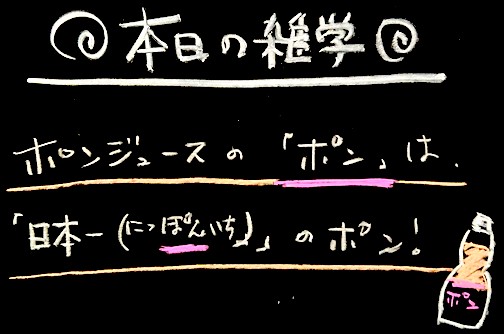 本日の雑学
ポンジュースの「ポン」は、
「日本一(にっぽんいち)」のポン!
ポン